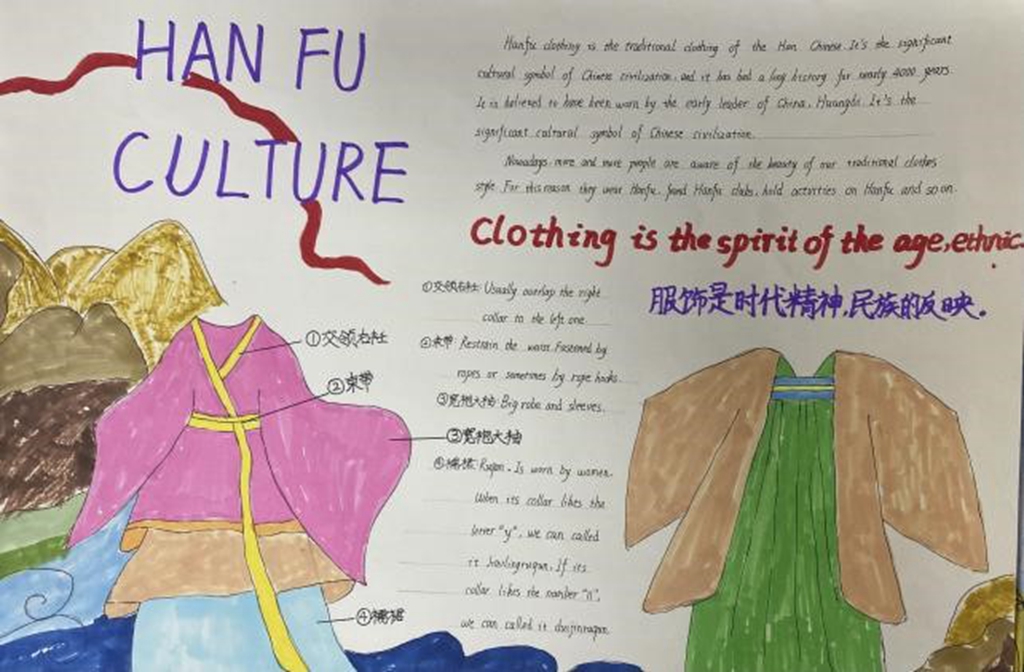 HAN FU
CULTURE
Hanfu clothing is the traditional clothing of the Han Chinese. It's the significant
cultural symbol of Chinese civilization, and it has had a long history for nearly 4000 years.
It is believed to have been worn by the early leader of China, Huangdi. It's the
significant cultural symbol of Chinese civilization.
Nowadays more and more people are aware of the beauty of our traditional clothes
style. For this reason they wear Hanfu, found Hanfu clubs, hold activities on Hanfu and so on.
Clothing is the spirit of the age, ethnic.
服饰是时代精神,民族的反映。
①交领右衽: Usually overlap the right
collar to the left one
②束带: Restrain the waist. Fastened by
ropes or sometimes by rope hooks.
③宽袍大袖: Big robe and sleeves.
④襦裙: Ruqun. Is worn by women.
When its collar likes the
letter "y", we can called
it jiaolingruqun. If its
collar likes the number "11",
we can called it duijinruqun.
①交领右衽
②束带
③宽袍大袖
④襦裙